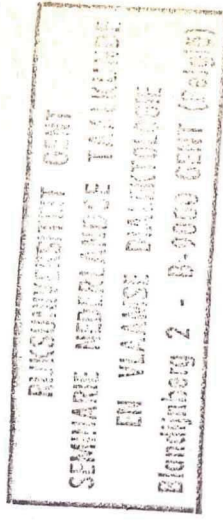 RIJKSUNIVERSITEIT GENT
SEMINARIE NEDERLANDSE TAALKUNDE
EN VLAAMSE DIALEKTOLOGIE
Blandijnberg 2 - B-9000 GENT (België)